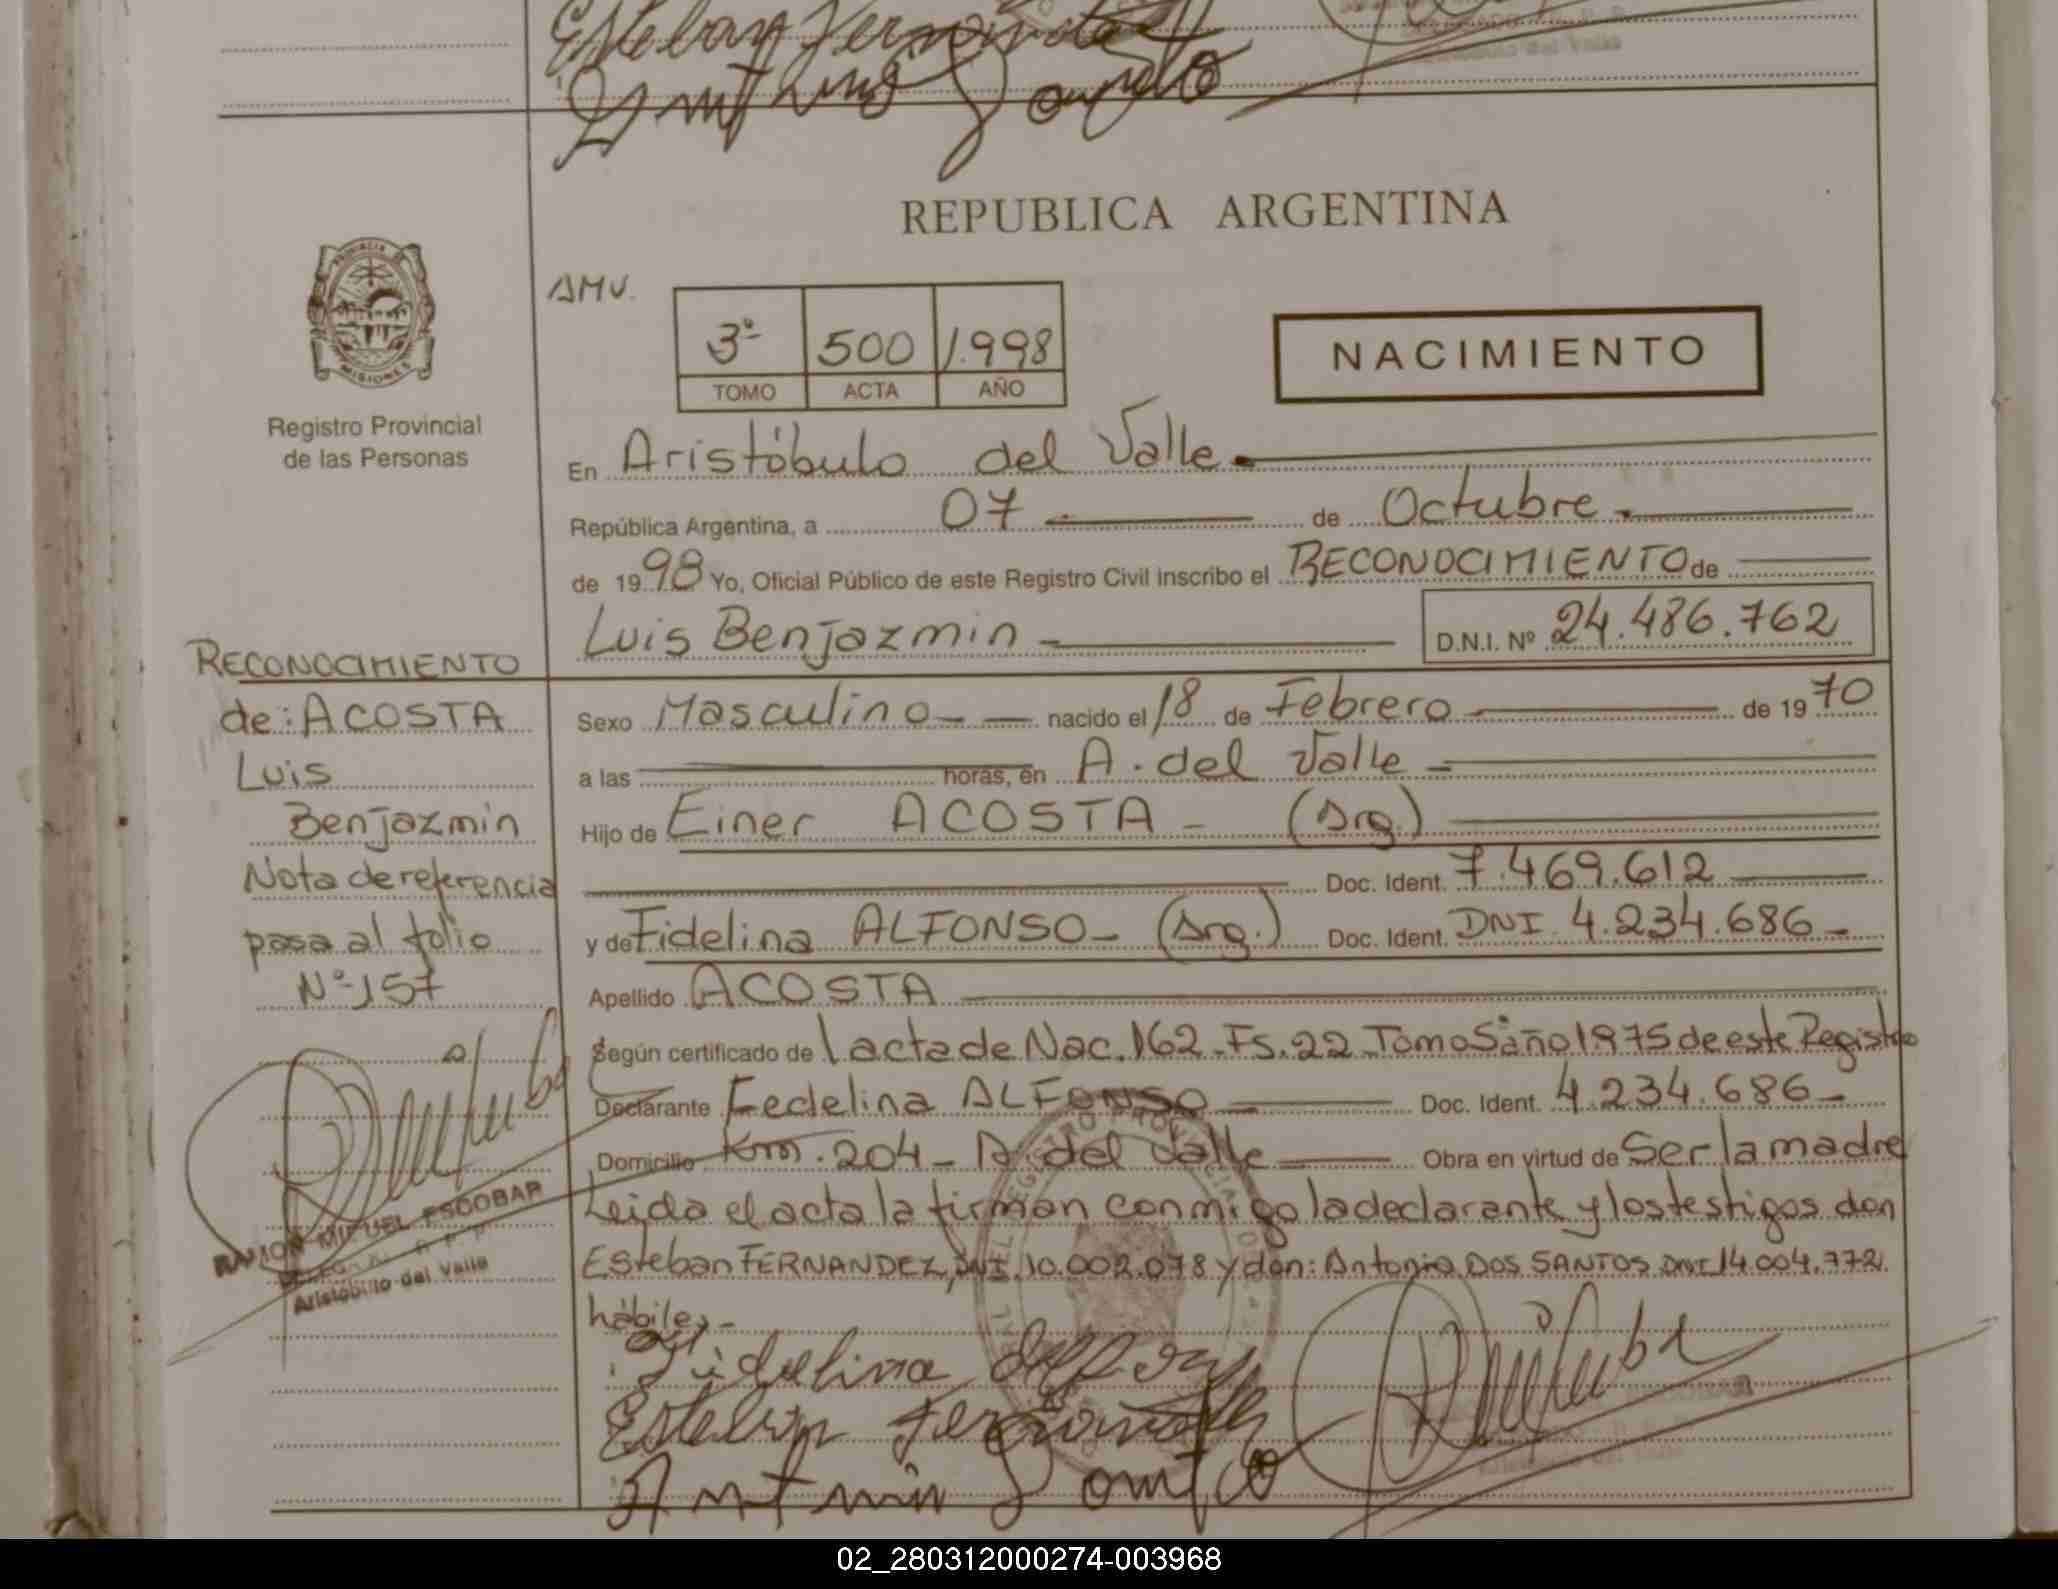 Esteban Fernandez
REPUBLICA ARGENTINA
PROVINCIA DE
MISIONES
Registro Provincial
de las Personas
AMV.
3º 500 1.998
TOMO ACTA AÑO
NACIMIENTO
En Aristóbulo del Valle.
República Argentina, a 07 de Octubre.
de 1998 Yo, Oficial Público de este Registro Civil inscribo el RECONOCIMIENTO de
Luis Benjazmin D.N.I. Nº 24.486.762
RECONOCIMIENTO
de: ACOSTA
Luis
Benjazmin
Nota de referencia
pasa al folio
Nº 157
RAMON MIGUEL ESCOBAR
Aristóbulo del Valle
Sexo Masculino nacido el 18 de Febrero de 1970
a las horas, en A. del Valle
Hijo de Einer ACOSTA - (Arg.)
Doc. Ident. 7.469.612
y de Fidelina ALFONSO - (Arg.) Doc. Ident. DNI. 4.234.686-
Apellido ACOSTA
Según certificado de l acta de Nac. 162 - Fs. 22 Tomo 5º año 1975 de este Registro
Declarante Fedelina ALFONSO Doc. Ident. 4.234.686-
Domicilio Km. 204 - A. del Valle Obra en virtud de Ser la madre
Leida el acta la firman conmigo la declarante y los testigos don
Esteban FERNANDEZ, DNI. 10.002.078 y don: Antonio DOS SANTOS DNI 14.004.772
hábiles -
Fidelina
Esteban Fernandez
02_280312000274-003968